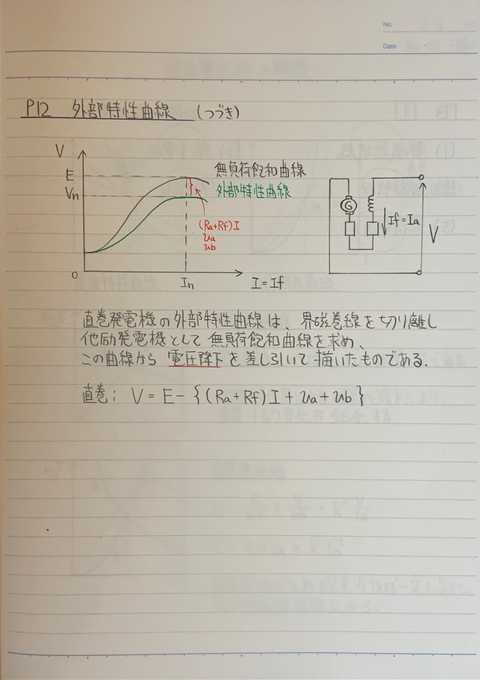 No.
Date
P12 外部特性曲線 (つづき)
V
E
Vn
0
In
I=If
無負荷飽和曲線
外部特性曲線
(Ra+Rf)I
va
vb
G
If=Ia
V
直巻発電機の外部特性曲線は、界磁巻線を切り離し
他励発電機として無負荷飽和曲線を求め、
この曲線から電圧降下を差し引いて描いたものである.
直巻; V = E - {(Ra+Rf)I + va + vb}